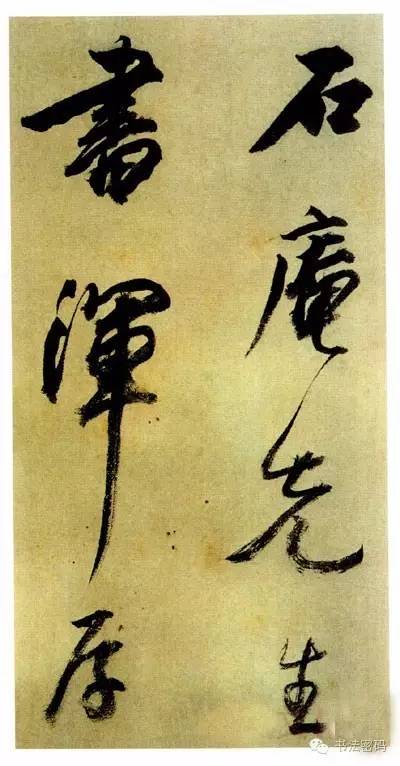 石庵先生
書渾厚
书法密码